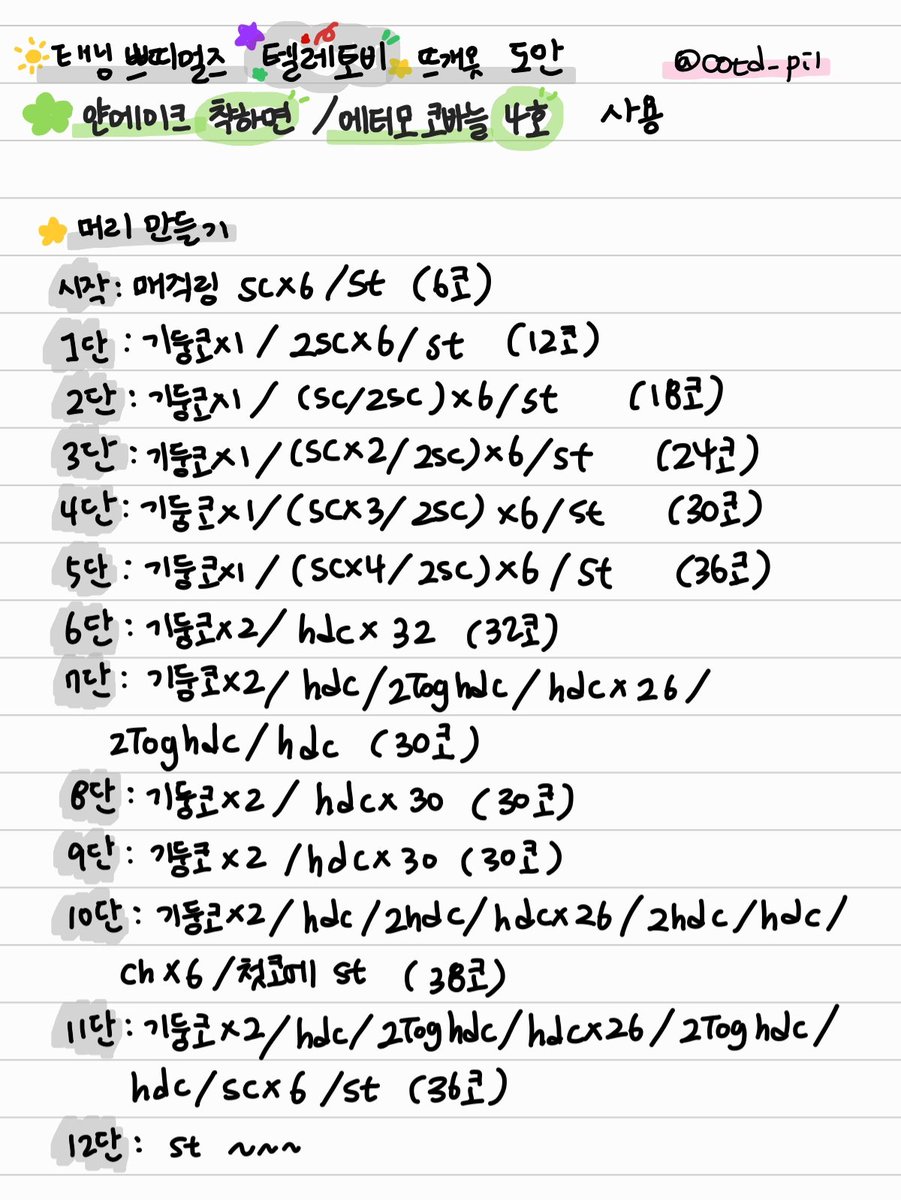 태닝 쁘띠멀즈 텔레토비 뜨개옷 도안 @ootd_pil
얀에이크 착하면 / 에터모 코바늘 4호 사용
머리 만들기
시작: 매직링 sc×6 / st (6코)
1단 : 기둥코×1 / 2sc×6 / st (12코)
2단 : 기둥코×1 / (sc/2sc)×6 / st (18코)
3단 : 기둥코×1 / (sc×2 / 2sc)×6 / st (24코)
4단 : 기둥코×1 / (sc×3 / 2sc) ×6 / st (30코)
5단 : 기둥코×1 / (sc×4 / 2sc)×6 / st (36코)
6단 : 기둥코×2 / hdc× 32 (32코)
7단 : 기둥코×2 / hdc / 2Tog hdc / hdc×26 /
2Tog hdc / hdc (30코)
8단 : 기둥코×2 / hdc× 30 (30코)
9단 : 기둥코 ×2 / hdc×30 (30코)
10단 : 기둥코×2 / hdc / 2hdc / hdc×26 / 2hdc / hdc /
ch×6 / 첫코에 st (38코)
11단 : 기둥코×2 / hdc / 2Tog hdc / hdc×26 / 2Tog hdc /
hdc / sc×6 / st (36코)
12단 : st ~~~